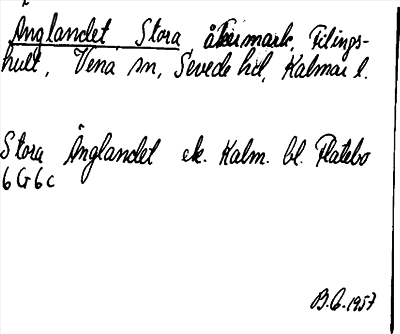 Änglandet, Stora, åkermark, Filings-
hult, Vena sn, Sevede hd, Kalmar l.
Stora Änglandet ek. Kalm. bl. Flatebo
6G6c
B.G. 1957